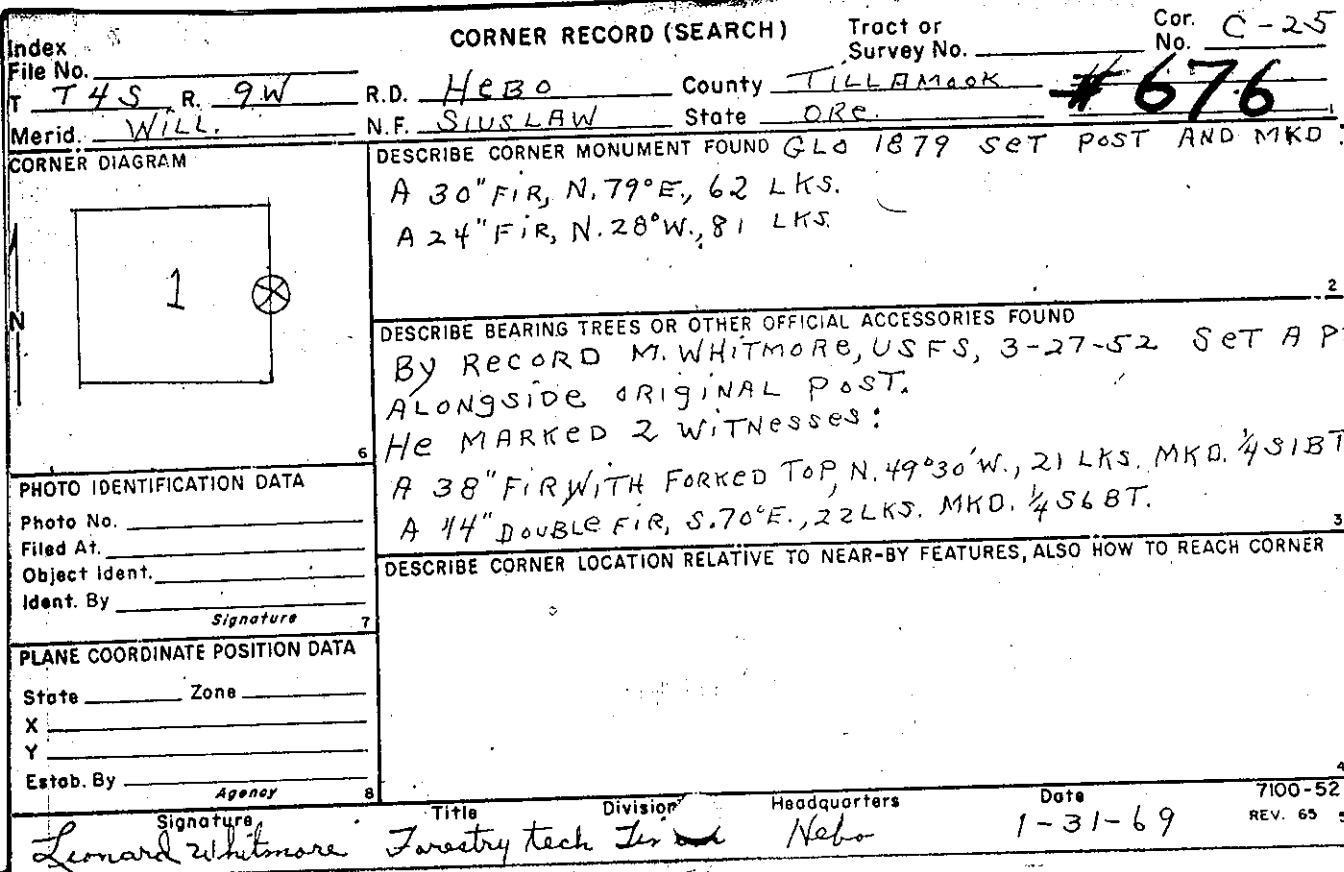 CORNER RECORD (SEARCH)
Index
File No.
Tract or
Survey No.
Cor.
No. C-25
T T4S R. 9W R.D. HEBO County TILLAMOOK #676
1
Merid. WILL. N.F. SIUSLAW State ORE.
CORNER DIAGRAM
1
N
6
DESCRIBE CORNER MONUMENT FOUND GLO 1879 SET POST AND MKD.
A 30" FIR, N.79°E., 62 LKS.
A 24" FIR, N.28°W., 81 LKS.
2
DESCRIBE BEARING TREES OR OTHER OFFICIAL ACCESSORIES FOUND
BY RECORD M. WHITMORE, USFS, 3-27-52 SET A P
ALONGSIDE ORIGINAL POST.
HE MARKED 2 WITNESSES:
A 38" FIR WITH FORKED TOP, N.49°30'W., 21 LKS. MKD. 1/4 S1BT
A 44" DOUBLE FIR, S.70°E., 22 LKS. MKD. 1/4 S6BT.
3
PHOTO IDENTIFICATION DATA
Photo No.
Filed At.
Object Ident.
Ident. By
Signature
7
DESCRIBE CORNER LOCATION RELATIVE TO NEAR-BY FEATURES, ALSO HOW TO REACH CORNER
4
PLANE COORDINATE POSITION DATA
State Zone
X
Y
Estab. By
Agency
8
Signature Title Division Headquarters Date 7100-52
REV. 65 5
Leonard Whitmore Forestry tech Hebo 1-31-69